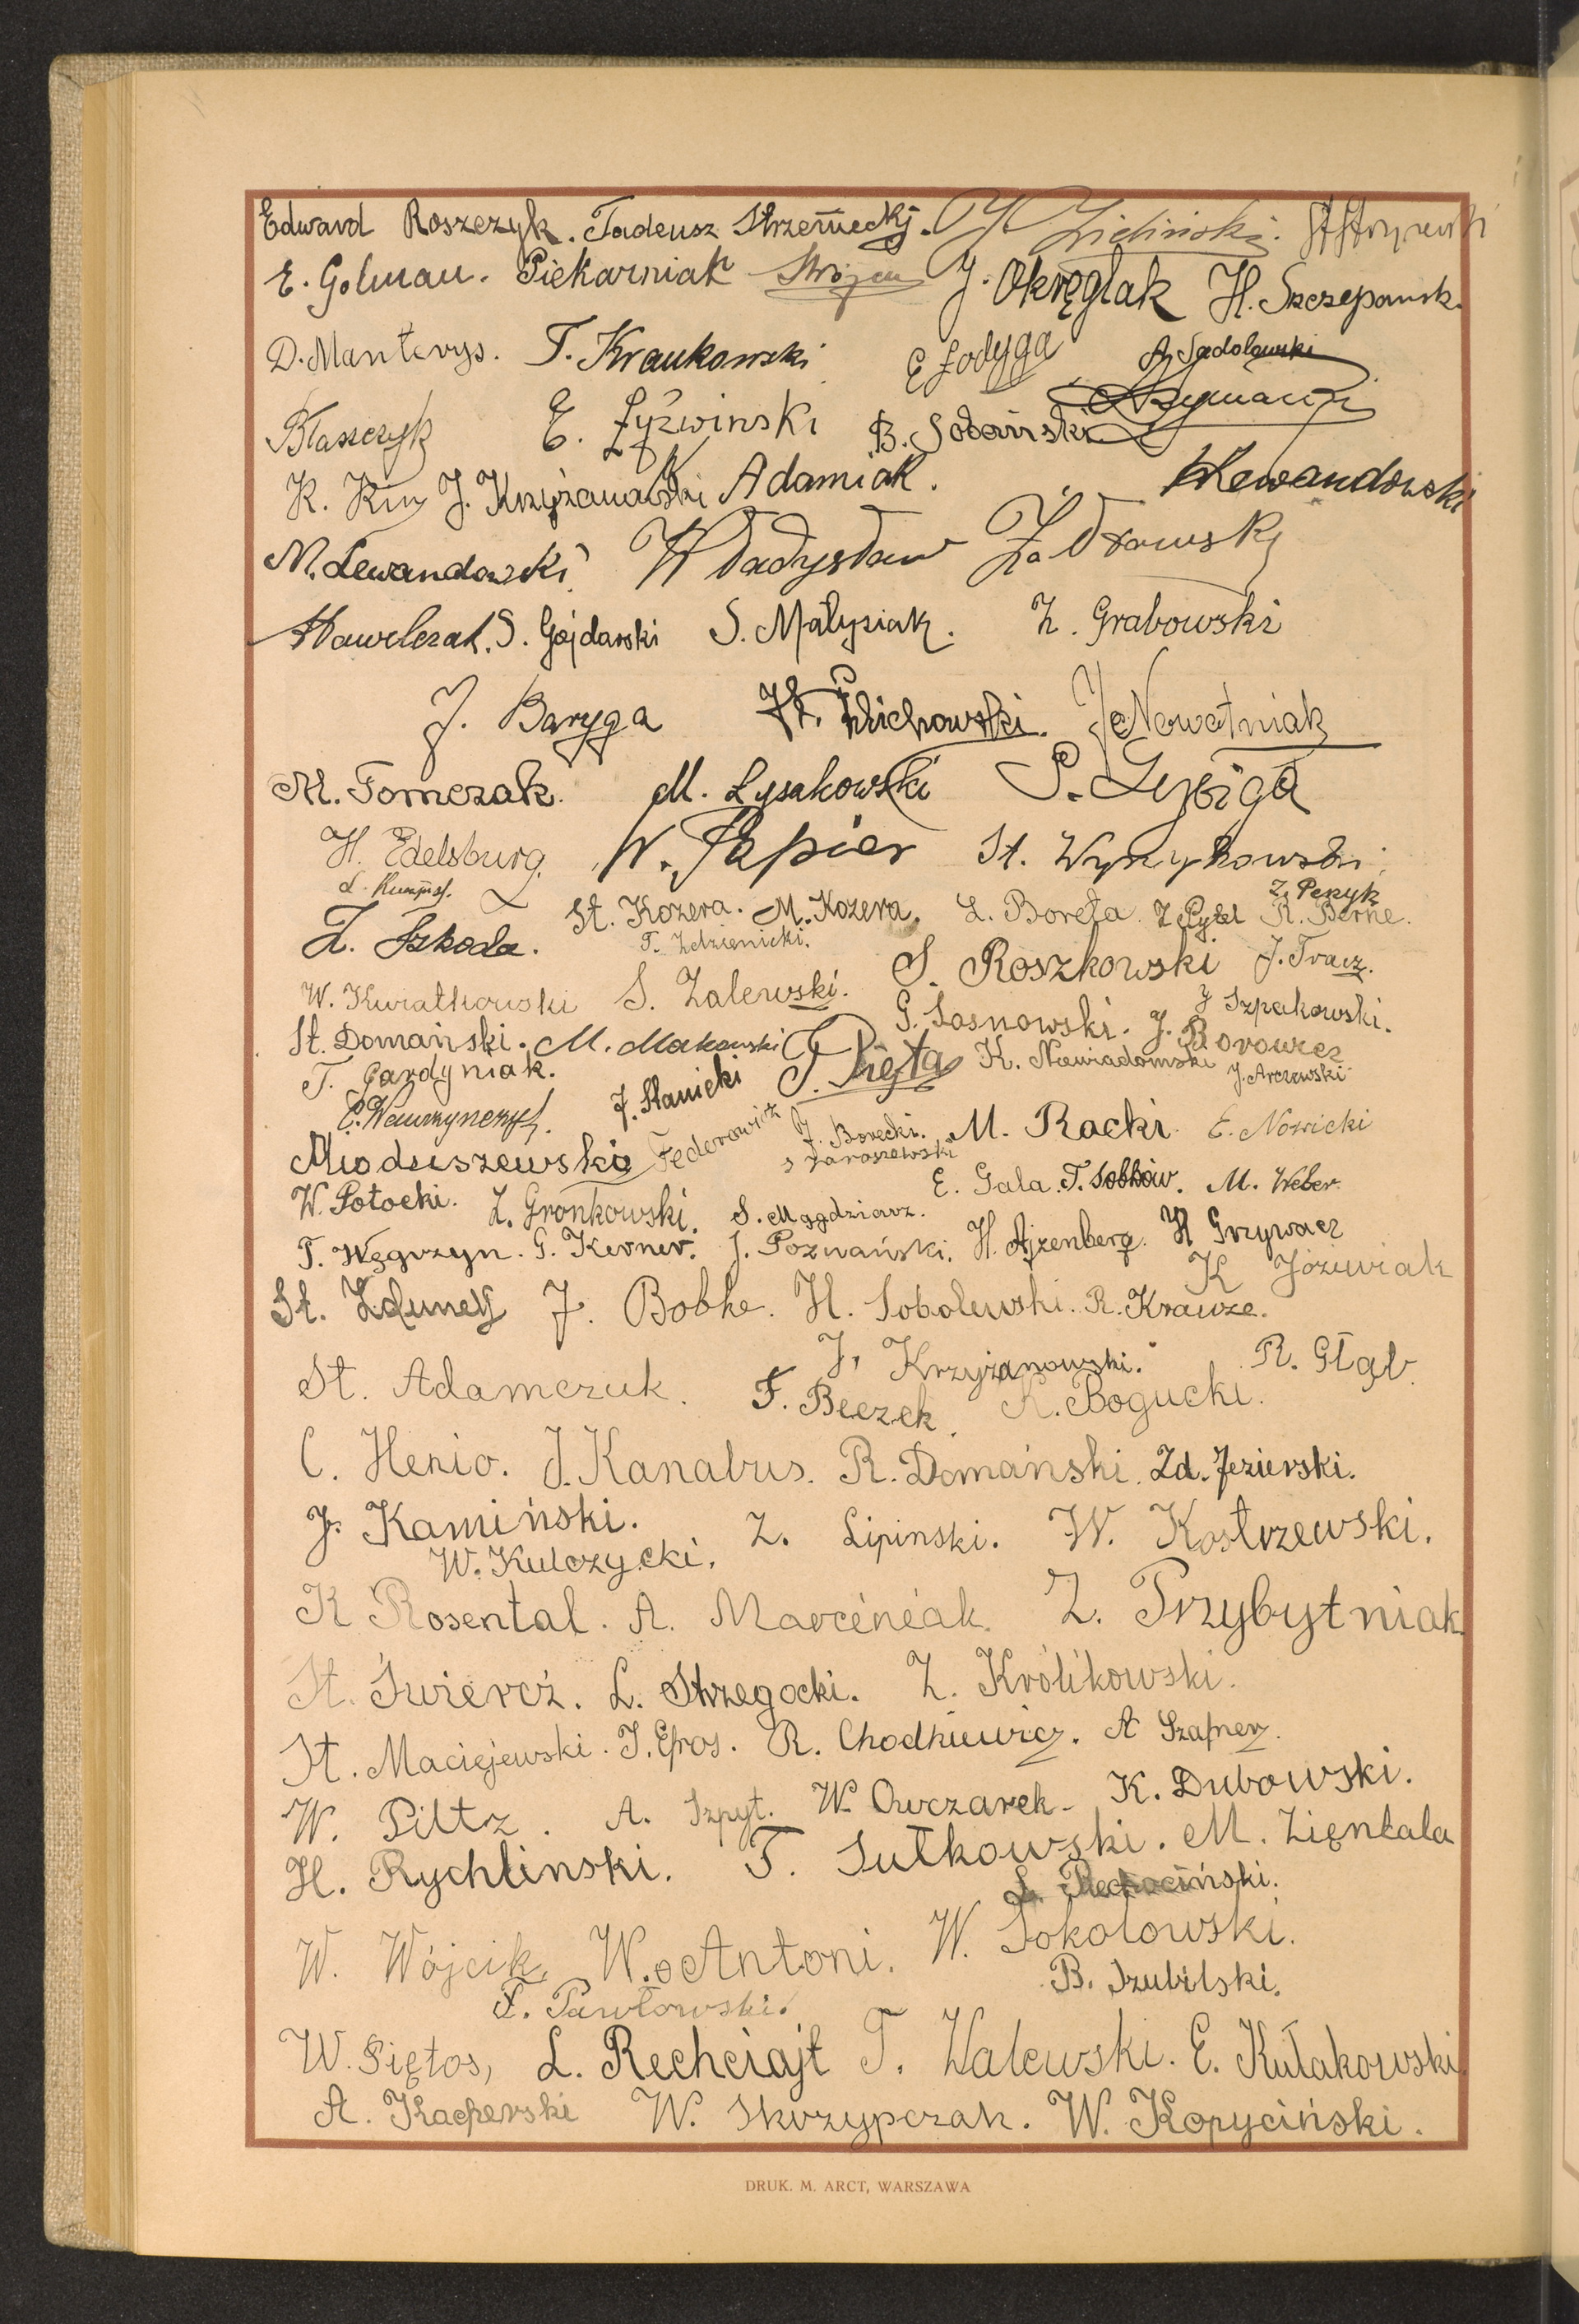 Edward Roszczyk. Tadeusz Strzemecki. Zieliński.
E. Golman. Piekarniak J. Okręglak H. Szczepansk.
D. Manterys. T. Kraukowski E Łodyga A Sadolewski
Błaszczyk E. Łyżwinski B. Sobański Szymański
K. J. Krzyżanowski K Adamiak. Lewandowski
M. Lewandowski Władysław
Pawelczak. S. Gojdarski S. Małysiak. Z. Grabowski
J. Baryga Michowski. Nowotniak
M. Tomczak. M. Lysakowski S.
H. Edelsburg. W. Papier St. Wyrzykowski
L.
Z. Szkoda. St. Kozera. M. Kozera. L. Boreta Z Pytel R. Berne.
Z. Pezyk
T. Zdzienicki.
W. Kwiatkowski S. Zalewski. S. Roszkowski J. Tracz.
St. Domański. M. Makowski G. Sosnowski. J Szpakowski.
T. Gardyniak. J. Stanicki T. Pięta K. Niewiadomski J. Borowicz
J. Arczewski
E. Wawrzynczyk. Fedorowicz J. Borecki. M. Racki. E. Nowicki
Mioduszewski S Jaroszewski
W. Potocki. Z. Gronkowski. S. Magdziarz. E. Gala. T. Sobków. M. Weber.
T. Węgrzyn. G. Kerner. J. Poznański. H. Ajzenberg. H Grzywacz
St. Zduney J. Bobke. H. Sobolewski. R. Krauze. K Jóźwiak
St. Adamczuk. J. Krzyżanowski. R. Głąb.
F. Beczek. K. Bogucki.
C. Henio. J. Kanabus. R. Domański. Zd. Jezierski.
J. Kamiński. Z. Lipinski. W. Kostrzewski.
W. Kulczycki.
K Rosental. A. Marciniak. Z. Przybytniak.
St. Świercż. L. Strzegocki. Z. Królikowski.
St. Maciejewski. J. Efros. R. Chodkiewicz. A Szafnerz.
W. Piltz. A. Szpyt. W. Owczarek. K. Dubowski.
H. Rychlinski. T. Sułkowski. M. Zientala
W. Wójcik. W. Antoni. W. Sokołowski.
F. Pawłowski. B. Izubilski.
W. Siętos, L. Rechciajt T. Walewski. E. Kułakowski
A. Kacperski W. Skrzypczak. W. Kopyciński.
DRUK. M. ARCT, WARSZAWA